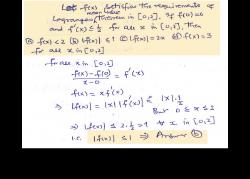 Let f(x) satisfies the requirements of
mean value
Lagranges Theorem in [0,2]. If f(0)=0
and f'(x) ≤ 1/2 for all x in [0,2], then
(a) f(x) < 2 (b) |f(x)| ≤ 1 (c) f(x) = 2x (d) f(x) = 3
for all x in [0,2]
for all x in [0,2]
f(x) - f(0) / x - 0 = f'(x)
f(x) = x f'(x)
⇒ |f(x)| = |x| |f'(x)| ≤ |x| . 1/2
But 0 ≤ x ≤ 2
⇒ |f(x)| ≤ 2 . 1/2 = 1 ∀ x in [0,2]
i.e. |f(x)| ≤ 1 ⇒ Answer (b)